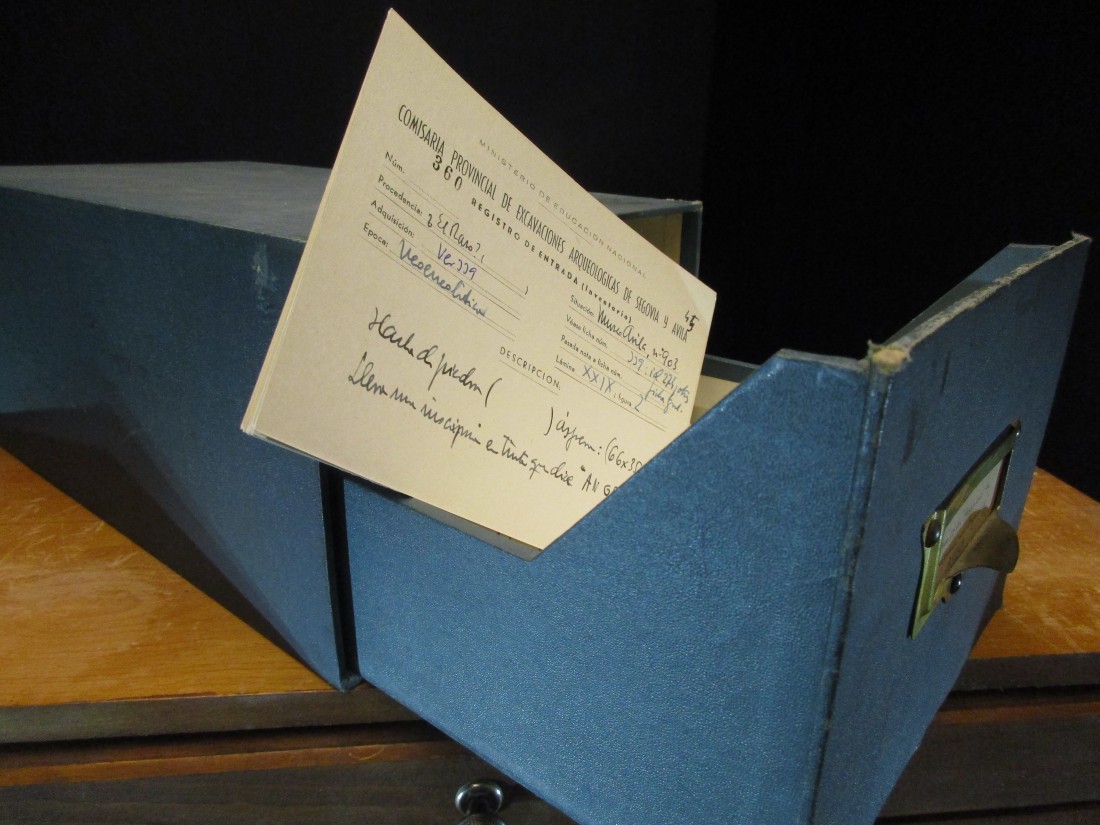 MINISTERIO DE EDUCACION NACIONAL
COMISARIA PROVINCIAL DE EXCAVACIONES ARQUEOLOGICAS DE SEGOVIA Y AVILA
360 REGISTRO DE ENTRADA (Inventario) 45
Núm.
Procedencia: El Raso?,
Adquisición: Ver 339
Epoca: Neoeneolítica
Situación: Museo Avila, nº 903
Véase ficha núm. 339
Pasada nota a ficha núm.
Lámina XXIX, figura 2
DESCRIPCION:
Hacha de piedra ( ) áspera: (66x35
Lleva una inscripción en tinta que dice "AN GE